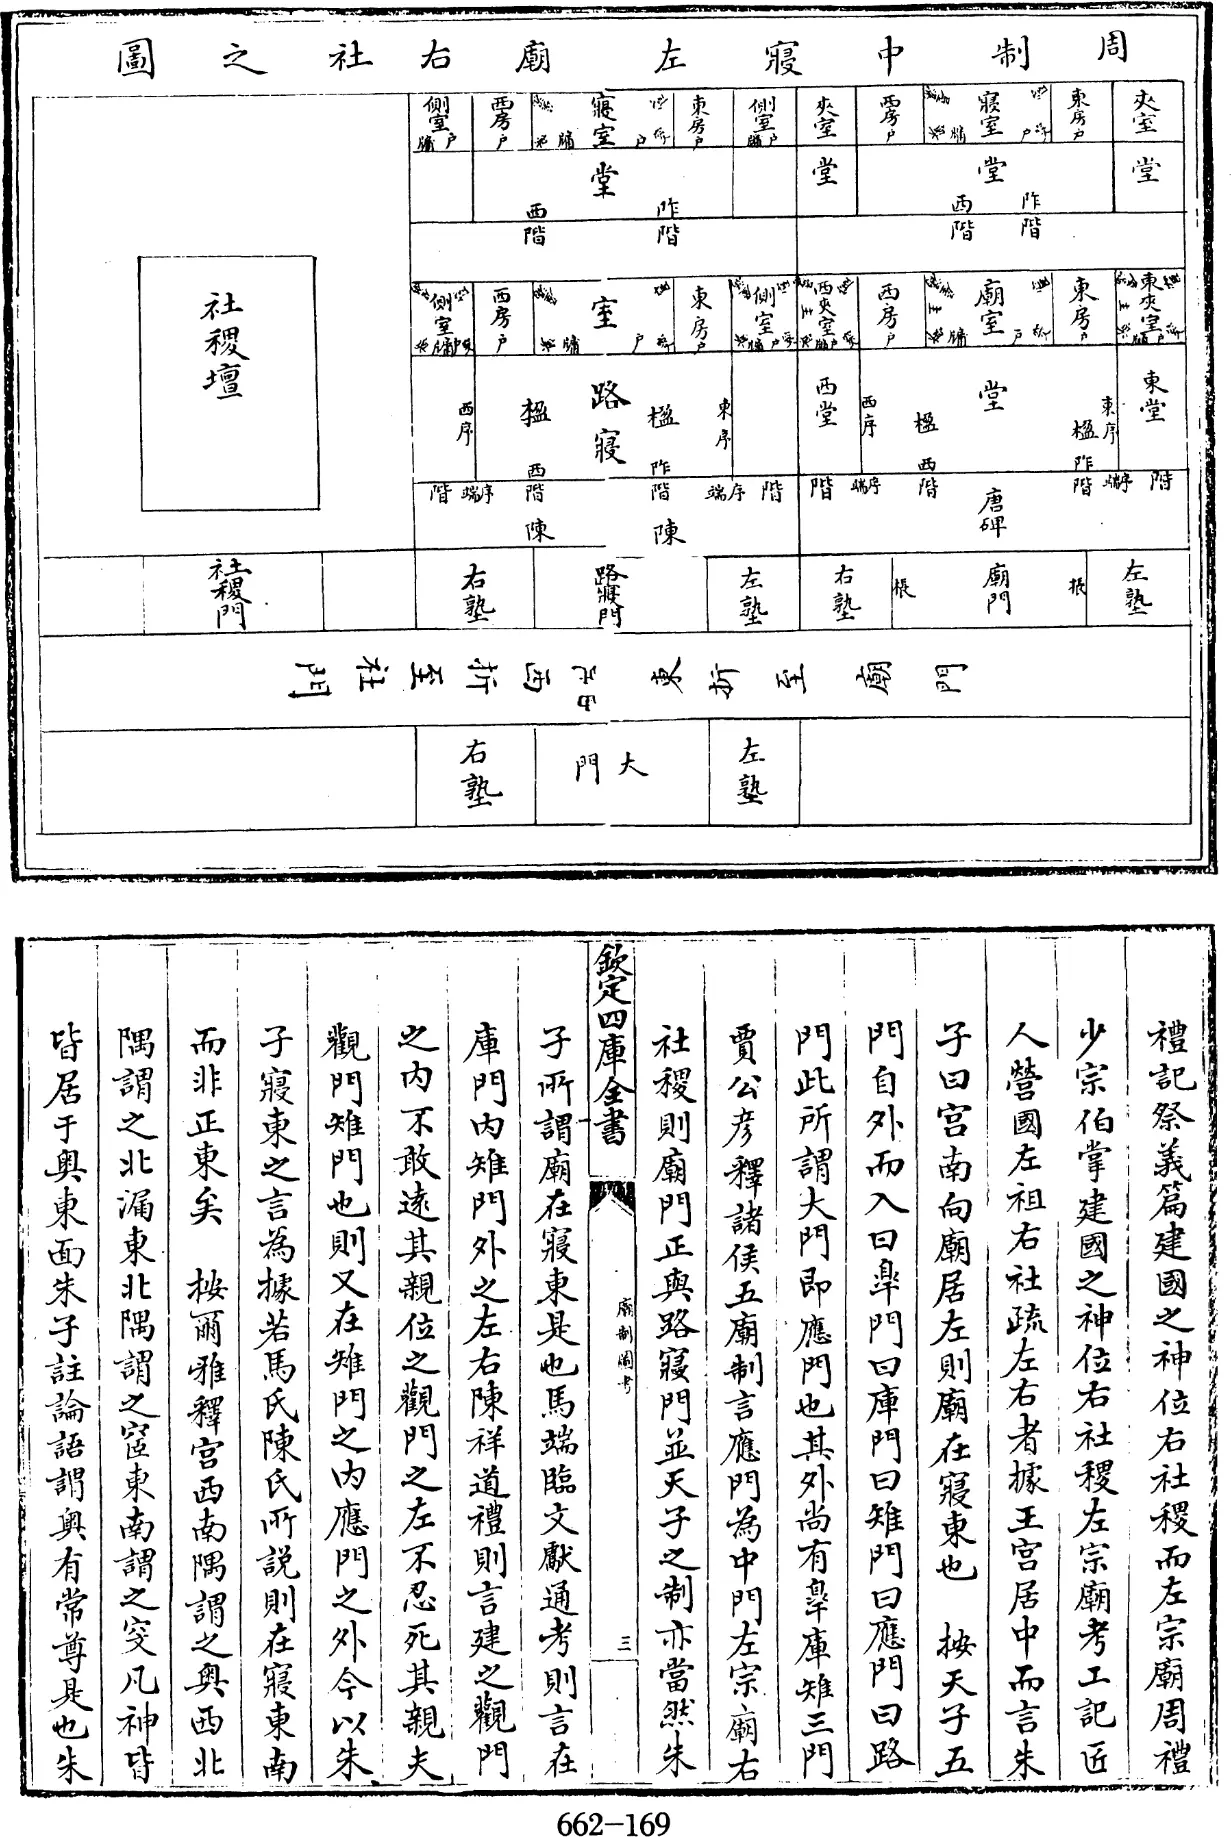 周制中寢左廟右社之圖
夾室 東房戶 寢室 戶 牖 西房戶 夾室 側室 牖戶 東房戶 寢室 戶 牖 西房戶 側室 牖戶
堂 堂 堂 堂
阼階 西階 阼階 西階
東夾室 東房戶 廟室 戶 牖 主 西房戶 西夾室 主 側室 牖戶 東房戶 室 戶 牖 西房戶 側室 牖戶
東堂 東序 楹 堂 楹 西序 西堂 東序 楹 路寢 楹 西序
階 序端 阼階 西階 序端 階 階 序端 阼階 西階 序端 階
唐碑 陳 陳
社稷壇
左塾 棖 廟門 棖 右塾 左塾 路寢門 右塾 社稷門
門廟至折東
西折至社門
左塾 大門 右塾
禮記祭義篇建國之神位右社稷而左宗廟周禮
少宗伯掌建國之神位右社稷左宗廟考工記匠
人營國左祖右社疏左右者據王宮居中而言朱
子曰宮南向廟居左則廟在寢東也 按天子五
門自外而入曰臯門曰庫門曰雉門曰應門曰路
門此所謂大門即應門也其外尚有臯庫雉三門
賈公彥釋諸侯五廟制言應門為中門左宗廟右
社稷則廟門正與路寢門並天子之制亦當然朱
欽定四庫全書
廟制圖考
三
子所謂廟在寢東是也馬端臨文獻通考則言在
庫門內雉門外之左右陳祥道禮則言建之觀門
之內不敢遠其親位之觀門之左不忍死其親夫
觀門雉門也則又在雉門之內應門之外今以朱
子寢東之言為據若馬氏陳氏所說則在寢東南
而非正東矣 按爾雅釋宮西南隅謂之奧西北
隅謂之北漏東北隅謂之宧東南謂之窔凡神皆
皆居于奧東面朱子註論語謂奧有常尊是也朱
662-169